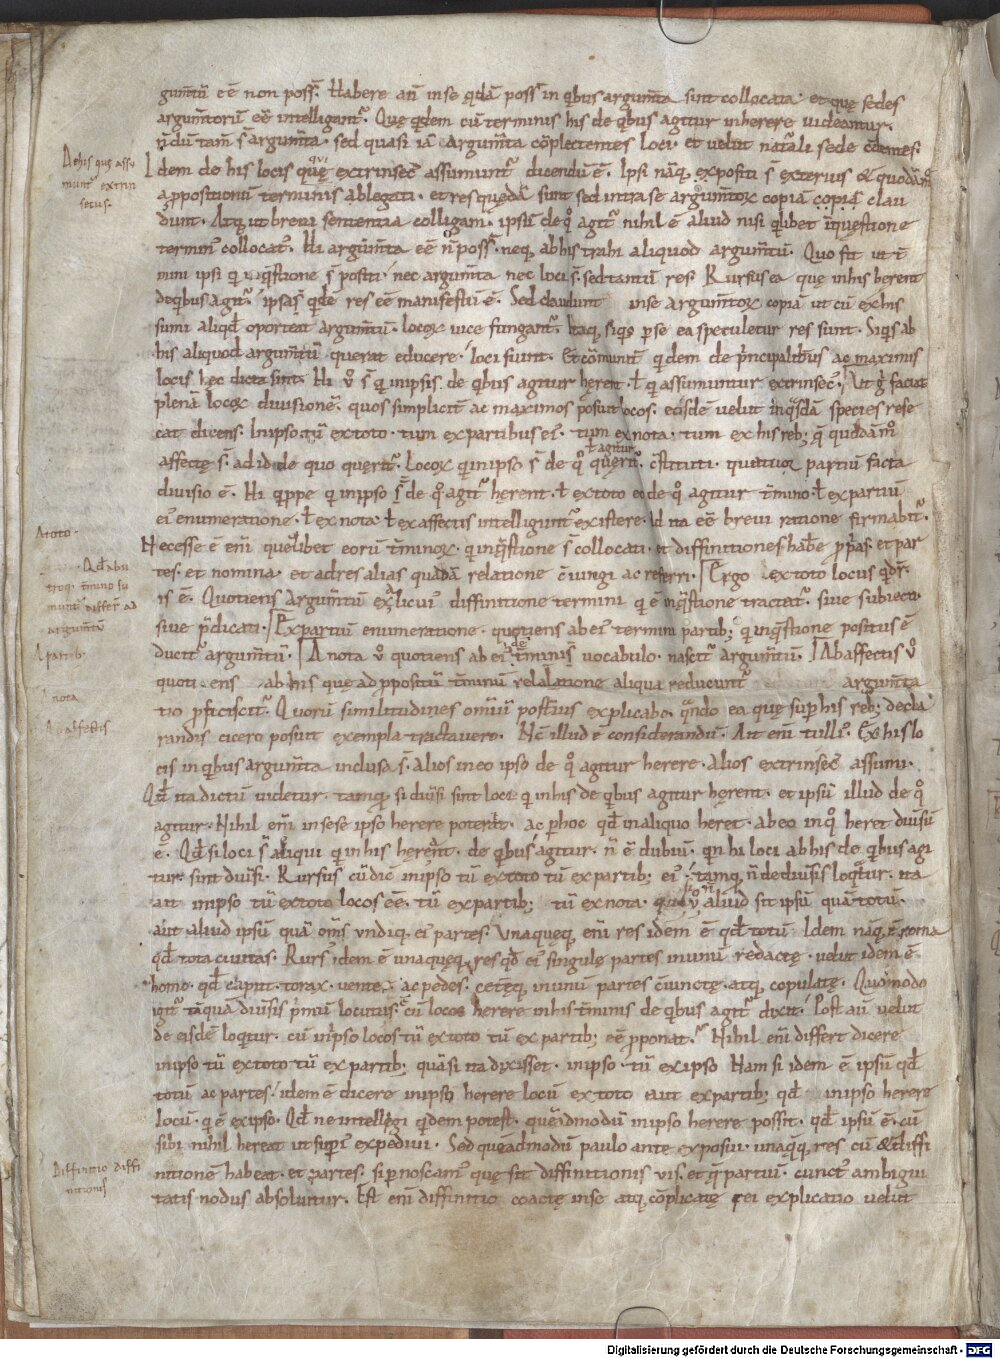 gum̅tū eē non poss̅. Habere aut̅ in se q̅dā poss̅ in q̅bus argum̅ta sint collocata. et quę sedes
argum̅torū eē intelligant᷑. Quę q̅dem cū terminis his de q̅bus agitur inherere videantur.
n̅dū tam̅ s̅ argum̅ta. sed quasi iā argum̅ta cōplectentes loci. et velut nat̅ali sede cōtinentes.
De his quę assu
munt᷑ extrin
secus.
Idem de his locis quę extrinsec᷒ assumunt᷑ dicendū ē. Ipsi nāq; expositi s̅ exterius & quodām̊
a ppositionū terminis ablegati. et res quędā sunt sed intra se argum̅toꝝ copiā copiā clau
dunt. Atq; ut brevi sententia colligam. ipsū de q̊ agit᷑ nihil ē aliud nisi q̅libet in questione
termin᷒ collocat᷒. Hi argum̅ta eē n̅ poss̅. neq; ab his trahi aliquod argum̅tū. Quo fit ut t̅
mini ipsi qui in q̅stione s̅ positi. nec argum̅ta nec loci s̅. sed tantū res. Rursus ea quę in his herent
de q̅bus agit᷑. ipsas q̅de res eē manifestū ē. Sed claudunt in se argum̅toꝝ copiā ut cū ex his
sumi aliq̅d oporteat argum̅tū. locoꝝ vice fungant᷑. Itaq; siq̅s p se ea speculetur res sunt. Siq̅s ab
his aliquod argum̅tū querat educere. loci fiunt. Et cōmunit̅ q̅dem de p̅ncipalibus ac maximis
locis hec dicta sint. Hi v̊ s̅ q in ipsis de q̅bus agitur herent. ł q assumuntur extrinsec᷒. Ait g̊ faciat
plenā locoꝝ divisionē. quos simplicit̅ ac maximos p̊suit locos. eosdē velut in q̅sdā species rese
cat dicens. In ipso tū ex toto. tum ex partibus ei᷒. tum ex nota. tum ex his reb; q̅ quodām̊
ł agitur
affectę s̅ ad id de quo querit᷑. Locoꝝ q in ipso s̅ de q̊ querit᷑. c̅stituti. quatuor partiū facta
divisio ē. Hi q̅ppe q in ipso s̅ de q̊ agit᷑ hęrent. ł ex toto eo de q̊ agitur t̅mino ł ex partiū
ei᷒ enumeratione. ł ex nota ł ex affectis intelligunt᷑ existere. Id ita eē brevi ratione firmabit᷑.
A toto.
Necesse ē eni̅ quelibet eorū t̅minoꝝ. q in q̅stione s̅ collocati. et diffinitiones habe p̅p̅as. et par
tes. et nomina. et ad res alias quadā relatione c̅iungi ac referri. Ergo ex toto locus q̅dr̅
is ē. Quotiens argum̅tū ex alicui᷒ diffinitione termini q ē in q̅stione tractat᷑. sive subiecti.
sive p̅dicati. Ex partiū enumeratione. quotiens ab ei᷒ termini partib; q in q̅stione positus ē
A partib;
ducit᷑ argum̅tū. A nota v̊ quotiens ab ei᷒ t̅minis vocabulo. nascit᷑ argum̅tū. Ab affectis v̊
A nota
quotiens ab his que ad ppositū t̅minū relatione aliqua reducunt᷑ argum̅ta
Ab affectis
tio pficiscit᷑. Quorū similitudines om̅iū post̅ius explicabo. q̅ndo ea quę sup his reb; decla
randis cicero posuit exempla tractavero. Nc̅ illud ē considerandū. Ait eni̅ tulli᷒. Ex his lo
cis in q̅bus argum̅ta inclusa s̅. alios in eo ipso de q̊ agitur herere. alios extrinsec᷒ assumi.
Qd̅ ita dictū videtur. tamq̅ si div̅si sint loci q in his de q̅bus agitur hęrent. et ipsū illud de q̊
agitur. Nihil eni̅ in sese ipso herere poterat. ac p hoc qd̅ in aliquo heret. ab eo in q̊ heret divisū
ē. Qd̅ si loci s̅ aliqui q in his herent. de q̅bus agitur. n̅ ē dubiū. qn hi loci ab his de q̅bus agi
tur. sint div̅si. Rursus cū dic̅ in ipso tū ex toto tū ex partib; ei᷒. tamq̅ n̅ de div̅sis loq̅tur. ita
ait in ipso tū ex toto locos eē. tū ex partib; tū ex nota. quasi v̊ aliud sit ipsū quā totū.
aut aliud ipsū quā om̅s undiq; ei᷒ partes. Unaquęq; eni̅ res idem ē qd̅ totū. Idem nāq; ē roma
qd̅ tota civitas. Rurs᷒ idem ē unaquęq; res qd̅ ei᷒ singulę partes in unū redactę. velut idem ē
homo. qd̅ caput. torax. venter. ac pedes. cetereq; in unū partes c̅iunctę. atq; copulatę. Quomodo
igit᷑ tāquā divisis p̅mū locutus ē cū locos herere in his t̅minis de q̅bus agit᷑ dixit. Post aut̅ velut
de eisdē loq̅tur. cū in ipso locos tū ex toto tū ex partib; eē p̅ponat᷑. Nihil eni̅ differt dicere
in ipso tū ex toto tū ex partib; quāsi ita dixisset. in ipso tū ex ipso. Nam si idem ē ipsū qd̅
totū ac partes. idem ē dicere in ipso herere locū ex toto aut ex partib; qd̅ in ipso herere
locū. q ē ex ipso. Qd̅ ne intellegi q̅dem potest. quēadmodū in ipso herere possit. qd̅ ipsū ē. cū
sibi nihil hereat ut sup̅i᷒ expedivi. Sed quēadmodū paulo ante exposui. unaq̅q; res cū & diffi
Diffinitio diffi
nitionis
nitionē habeat. et partes. si pnoscam᷒ quę sit diffinitionis vis. et q̅ partiū. cunct᷒ ambigui
tatis nodus absolvitur. Est eni̅ diffinitio coactę in se atq; cōplicatę rei explicatio velut
Digitalisierung gefördert durch die Deutsche Forschungsgemeinschaft - DFG